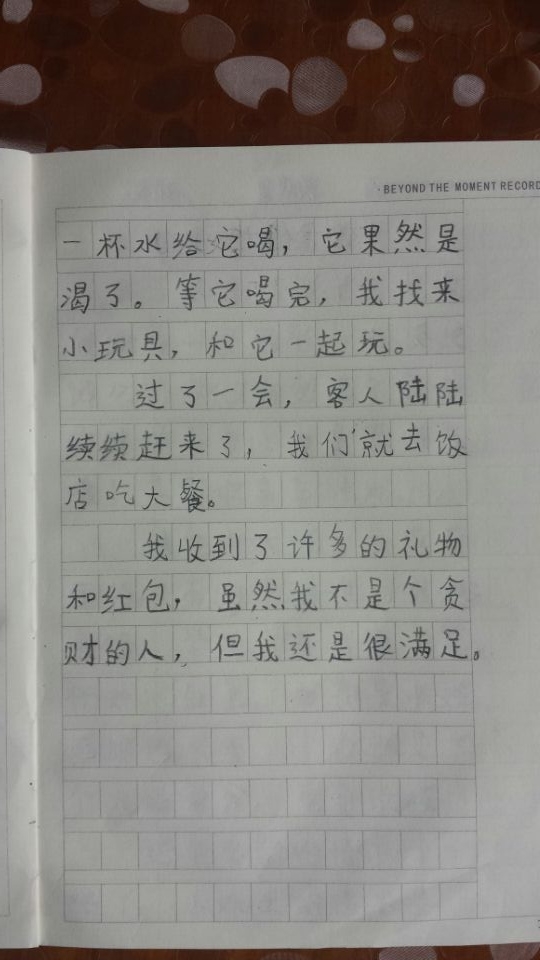 ·BEYOND THE MOMENT RECORD
一杯水给它喝，它果然是
渴了。等它喝完，我找来
小玩具，和它一起玩。
过了一会，客人陆陆
续续赶来了，我们就去饭
店吃大餐。
我收到了许多的礼物
和红包，虽然我不是个贪
财的人，但我还是很满足。